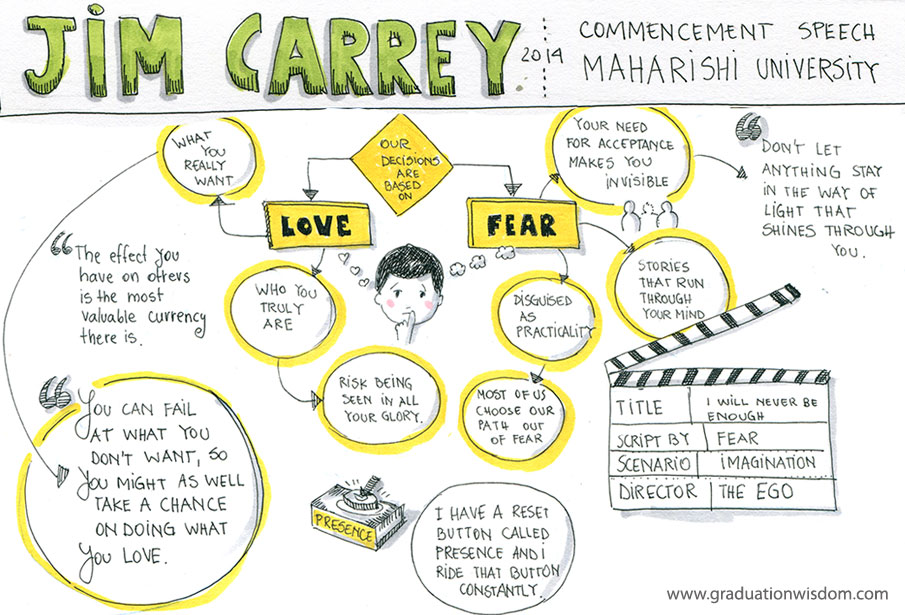 JIM CARREY
2014
COMMENCEMENT SPEECH
MAHARISHI UNIVERSITY
OUR
DECISIONS
ARE
BASED
ON
LOVE
FEAR
WHAT
YOU
REALLY
WANT
YOUR NEED
FOR ACCEPTANCE
MAKES YOU
INVISIBLE
“DON'T LET
ANYTHING STAY
IN THE WAY OF
LIGHT THAT
SHINES THROUGH
YOU.
“The effect you
have on others
is the most
valuable currency
there is.
WHO YOU
TRULY
ARE
RISK BEING
SEEN IN ALL
YOUR GLORY.
DISGUISED
AS
PRACTICALITY
MOST OF US
CHOOSE OUR
PATH OUT
OF FEAR
STORIES
THAT RUN
THROUGH
YOUR MIND
TITLE I WILL NEVER BE
ENOUGH
SCRIPT BY FEAR
SCENARIO IMAGINATION
DIRECTOR THE EGO
“YOU CAN FAIL
AT WHAT YOU
DON'T WANT, SO
YOU MIGHT AS WELL
TAKE A CHANCE
ON DOING WHAT
YOU LOVE.
PRESENCE
I HAVE A RESET
BUTTON CALLED
PRESENCE AND I
RIDE THAT BUTTON
CONSTANTLY.
www.graduationwisdom.com